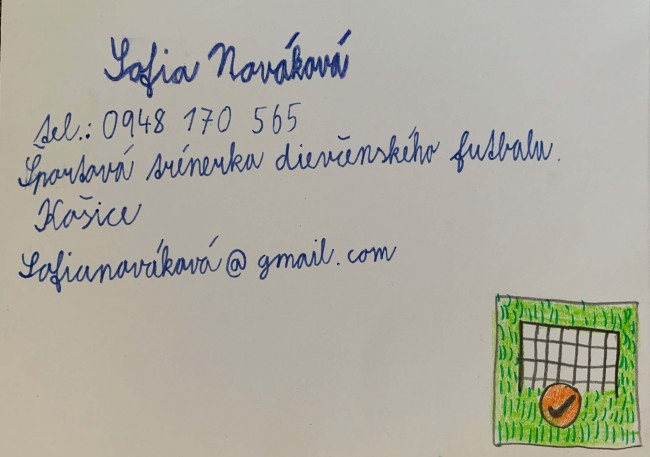 Sofia Nováková
tel.: 0948 170 565
Športová trénerka dievčenského futbalu.
Košice
Sofianováková@gmail.com